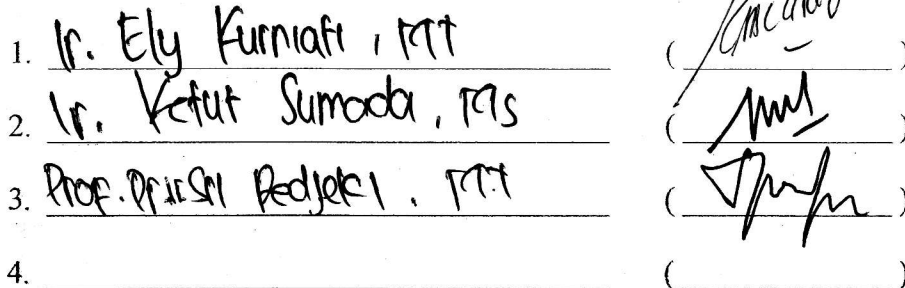 1. Ir. Ely Kurniati, MT ( )
2. Ir. Ketut Sumada, MS ( )
3. Prof. Dr. Ir. Sri Redjeki, MT ( )
4. ( )